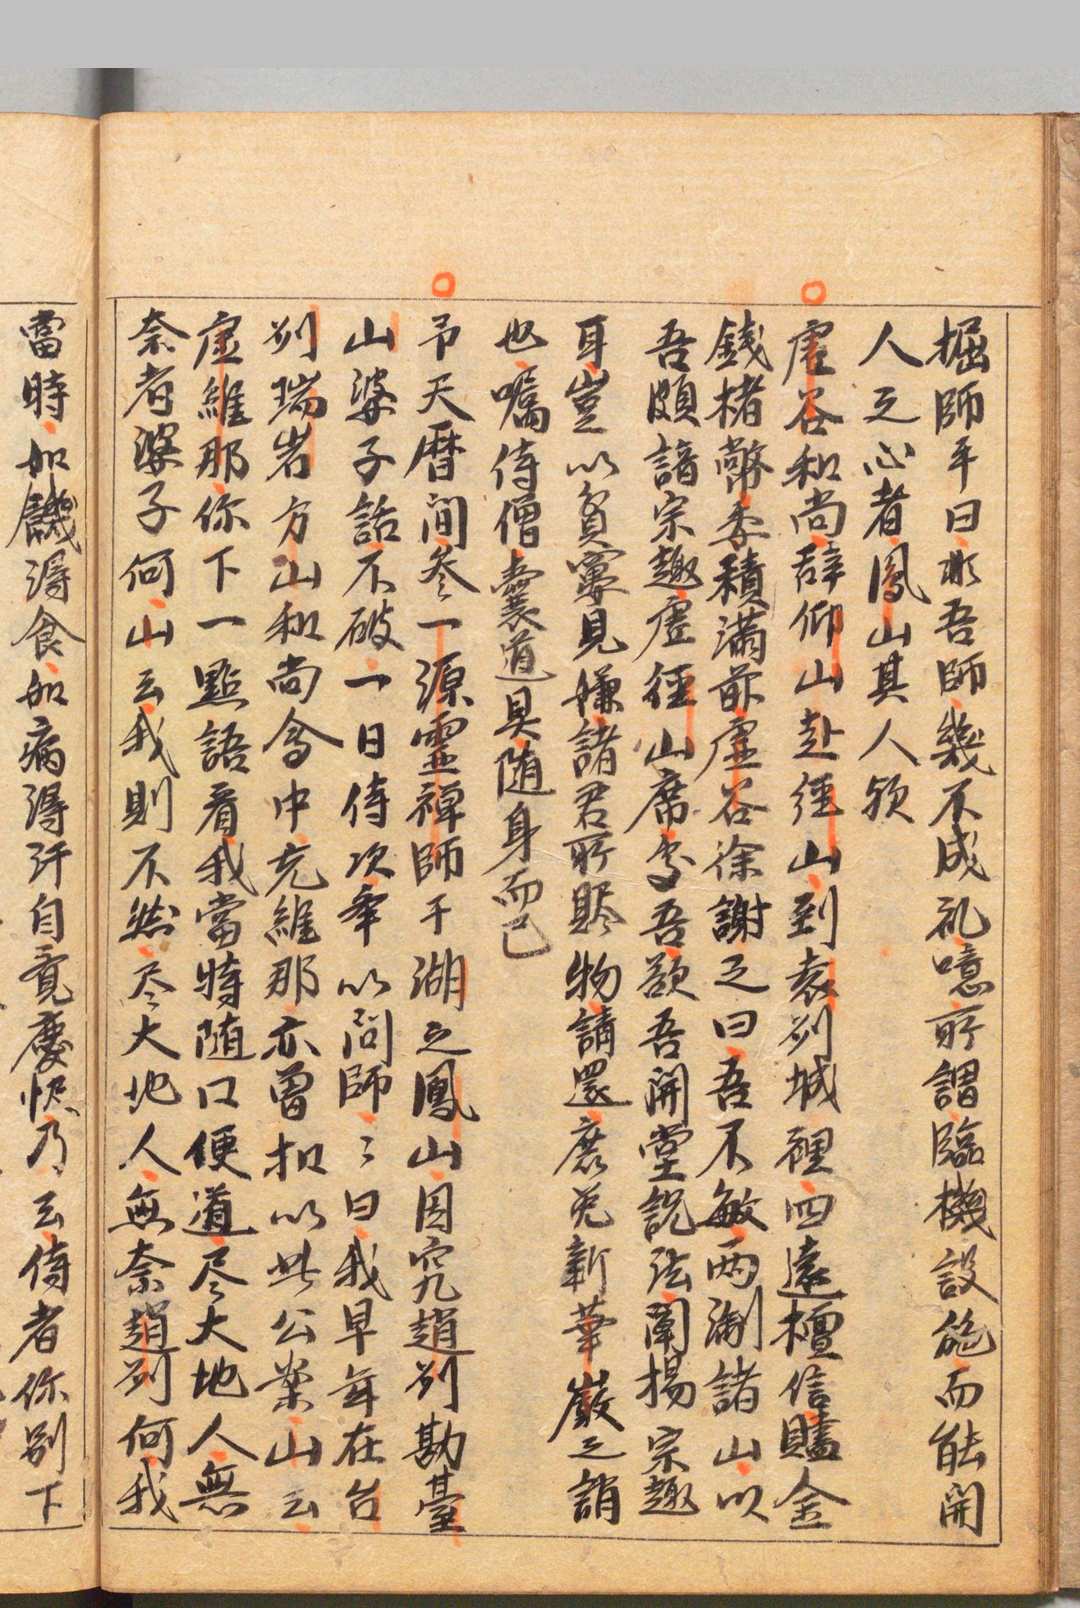 掘師平曰非吾師幾不成礼噫所謂臨機設施而能開
人之心者鳳山其人欤
虚谷和尚辞仰山赴徑山到袁州城裡四遠檀信賮金
錢楮幣委積滿前虚谷徐謝之曰吾不敏両淛諸山以
吾頗諳宗趣虚徑山席處吾欲吾開堂説法闡揚宗趣
耳豈以貧窶見嫌諸君所賮物請還庶免新華嚴之誚
也嘱侍僧囊道具随身而已
予天曆間叅一源靈禅師于湖之鳳山因究趙州勘臺
山婆子話不破一日侍次舉以問師〻曰我早年在台
州瑞岩方山和尚會中充維那亦曽扣以此公案山云
虚維那你下一點語看我當時随口便道尽大地人無
奈者婆子何山云我則不然尽大地人無奈趙州何我
當時如饑得食如病得汗自覓慶快乃云侍者你別下